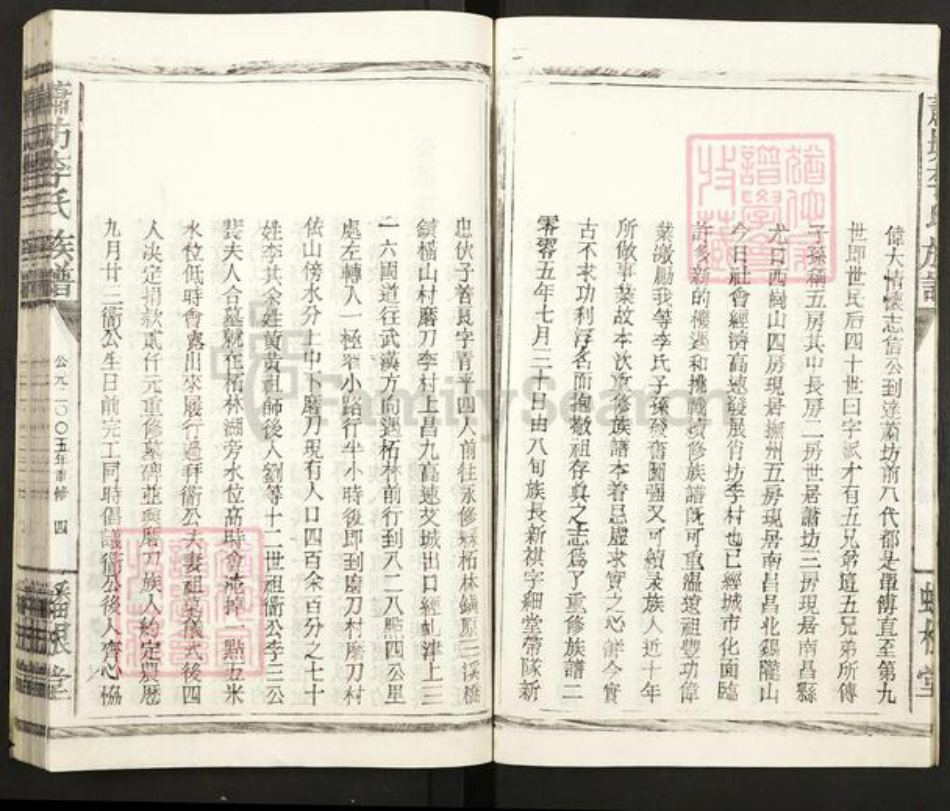 偉大情懷志信公到達蕭坊前八代都是單傳直至第九
世即世民后四十世曰字派才有五兄弟這五兄弟所傳
子孫稱五房其中長房二房世居蕭坊三房現居南昌縣
尤口西樹山四房現居撫州五房現居南昌昌北錫龍山
今日社會經濟高速發展肖坊李村也已經城市化面臨
許多新的機遇和挑戰續修族譜既可重溫遠祖豐功偉
業激勵我等李氏子孫發奮圖強又可續录族人近十年
所做事業故本次重修族譜本着忌虛求實之心詳今實
古不求功利浮名而抱敬祖存真之志爲了重修族譜二
零零五年七月三十日由八旬族長新祺字細堂帶隊新
忠伙子善民字青平四人前往永修縣柘林鎮原三溪橋
鎮橫山村磨刀李村上昌九高速艾城出口經虬津上三
一六國道往武漢方向過柘林前行到八二八點四公里
處左轉入一極窄小路行半小時後即到磨刀村磨刀村
依山傍水分上中下磨刀現有人口四百余百分之七十
姓李其余姓黄黄祖師後人劉等十二世祖衞公李三公
裴夫人合墓就在柘林湖旁水位高時會淹掉一點五米
水位低時會露出來履行過拜衞公夫妻祖墓儀式後四
人决定捐款貳仟元重修墓碑並與磨刀族人約定農歷
九月廿三衞公生日前完工同時倡議衞公後人齊心協
蕭坊李氏 族譜
公元二〇〇五年重修 四
蟠根堂
FamilySearch